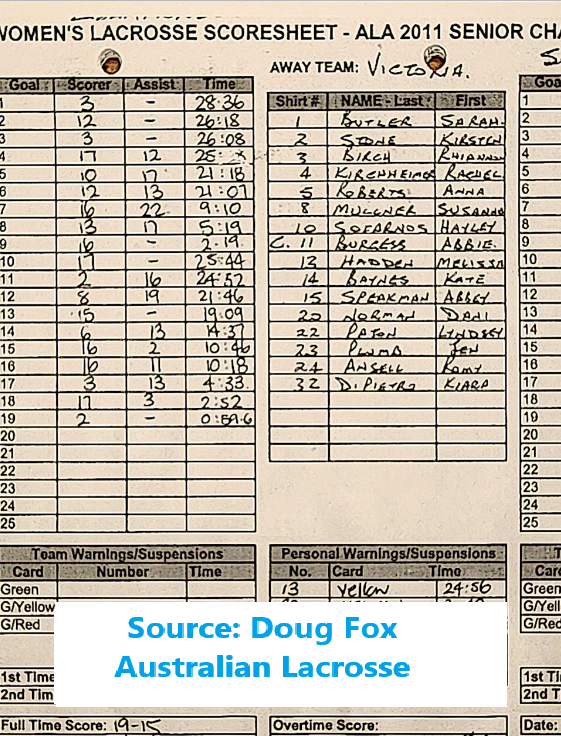 WOMEN'S LACROSSE SCORESHEET - ALA 2011 SENIOR CHA
AWAY TEAM: VICTORIA.
Goal Scorer Assist Time
1 3 - 28:36
2 12 - 26:18
3 3 - 26:08
4 17 12 25:
5 10 17 21:18
6 12 13 21:07
7 16 22 9:10
8 13 17 5:19
9 16 - 2:19
10 17 - 25:44
11 2 16 24:52
12 8 19 21:46
13 15 - 19:09
14 6 13 14:37
15 16 2 10:46
16 16 11 10:18
17 3 13 4:33
18 17 3 2:52
19 2 - 0:59.6
20
21
22
23
24
25
Shirt # NAME - Last First
1 BUTLER SARAH
2 STONE KIRSTEN
3 BIRCH RHIANNON
4 KIRCHHEIMER RACHEL
5 ROBERTS ANNA
8 MULLNER SUSANNA
10 SOFARNOS HAYLEY
C. 11 BURGESS ABBIE.
13 HADDEN MELISSA
14 BAYNES KATE
15 SPEAKMAN ABBEY
20 NORMAN DANI
22 PATON LYNDSEY
23 PLUMB JEN
24 ANSELL ROMY
32 DIPIETRO KIARA
Goa
1
2
3
4
5
6
7
8
9
10
11
12
13
14
15
16
17
18
19
20
21
22
23
24
25
Team Warnings/Suspensions
Card Number Time
Green
G/Yellow
G/Red
1st Time
2nd Tim
Personal Warnings/Suspensions
No. Card Time
13 Yellow 24:56
T
Card
Green
G/Yell
G/Red
1st Ti
2nd T
Source: Doug Fox
Australian Lacrosse
Full Time Score: 19-15
Overtime Score:
Date: